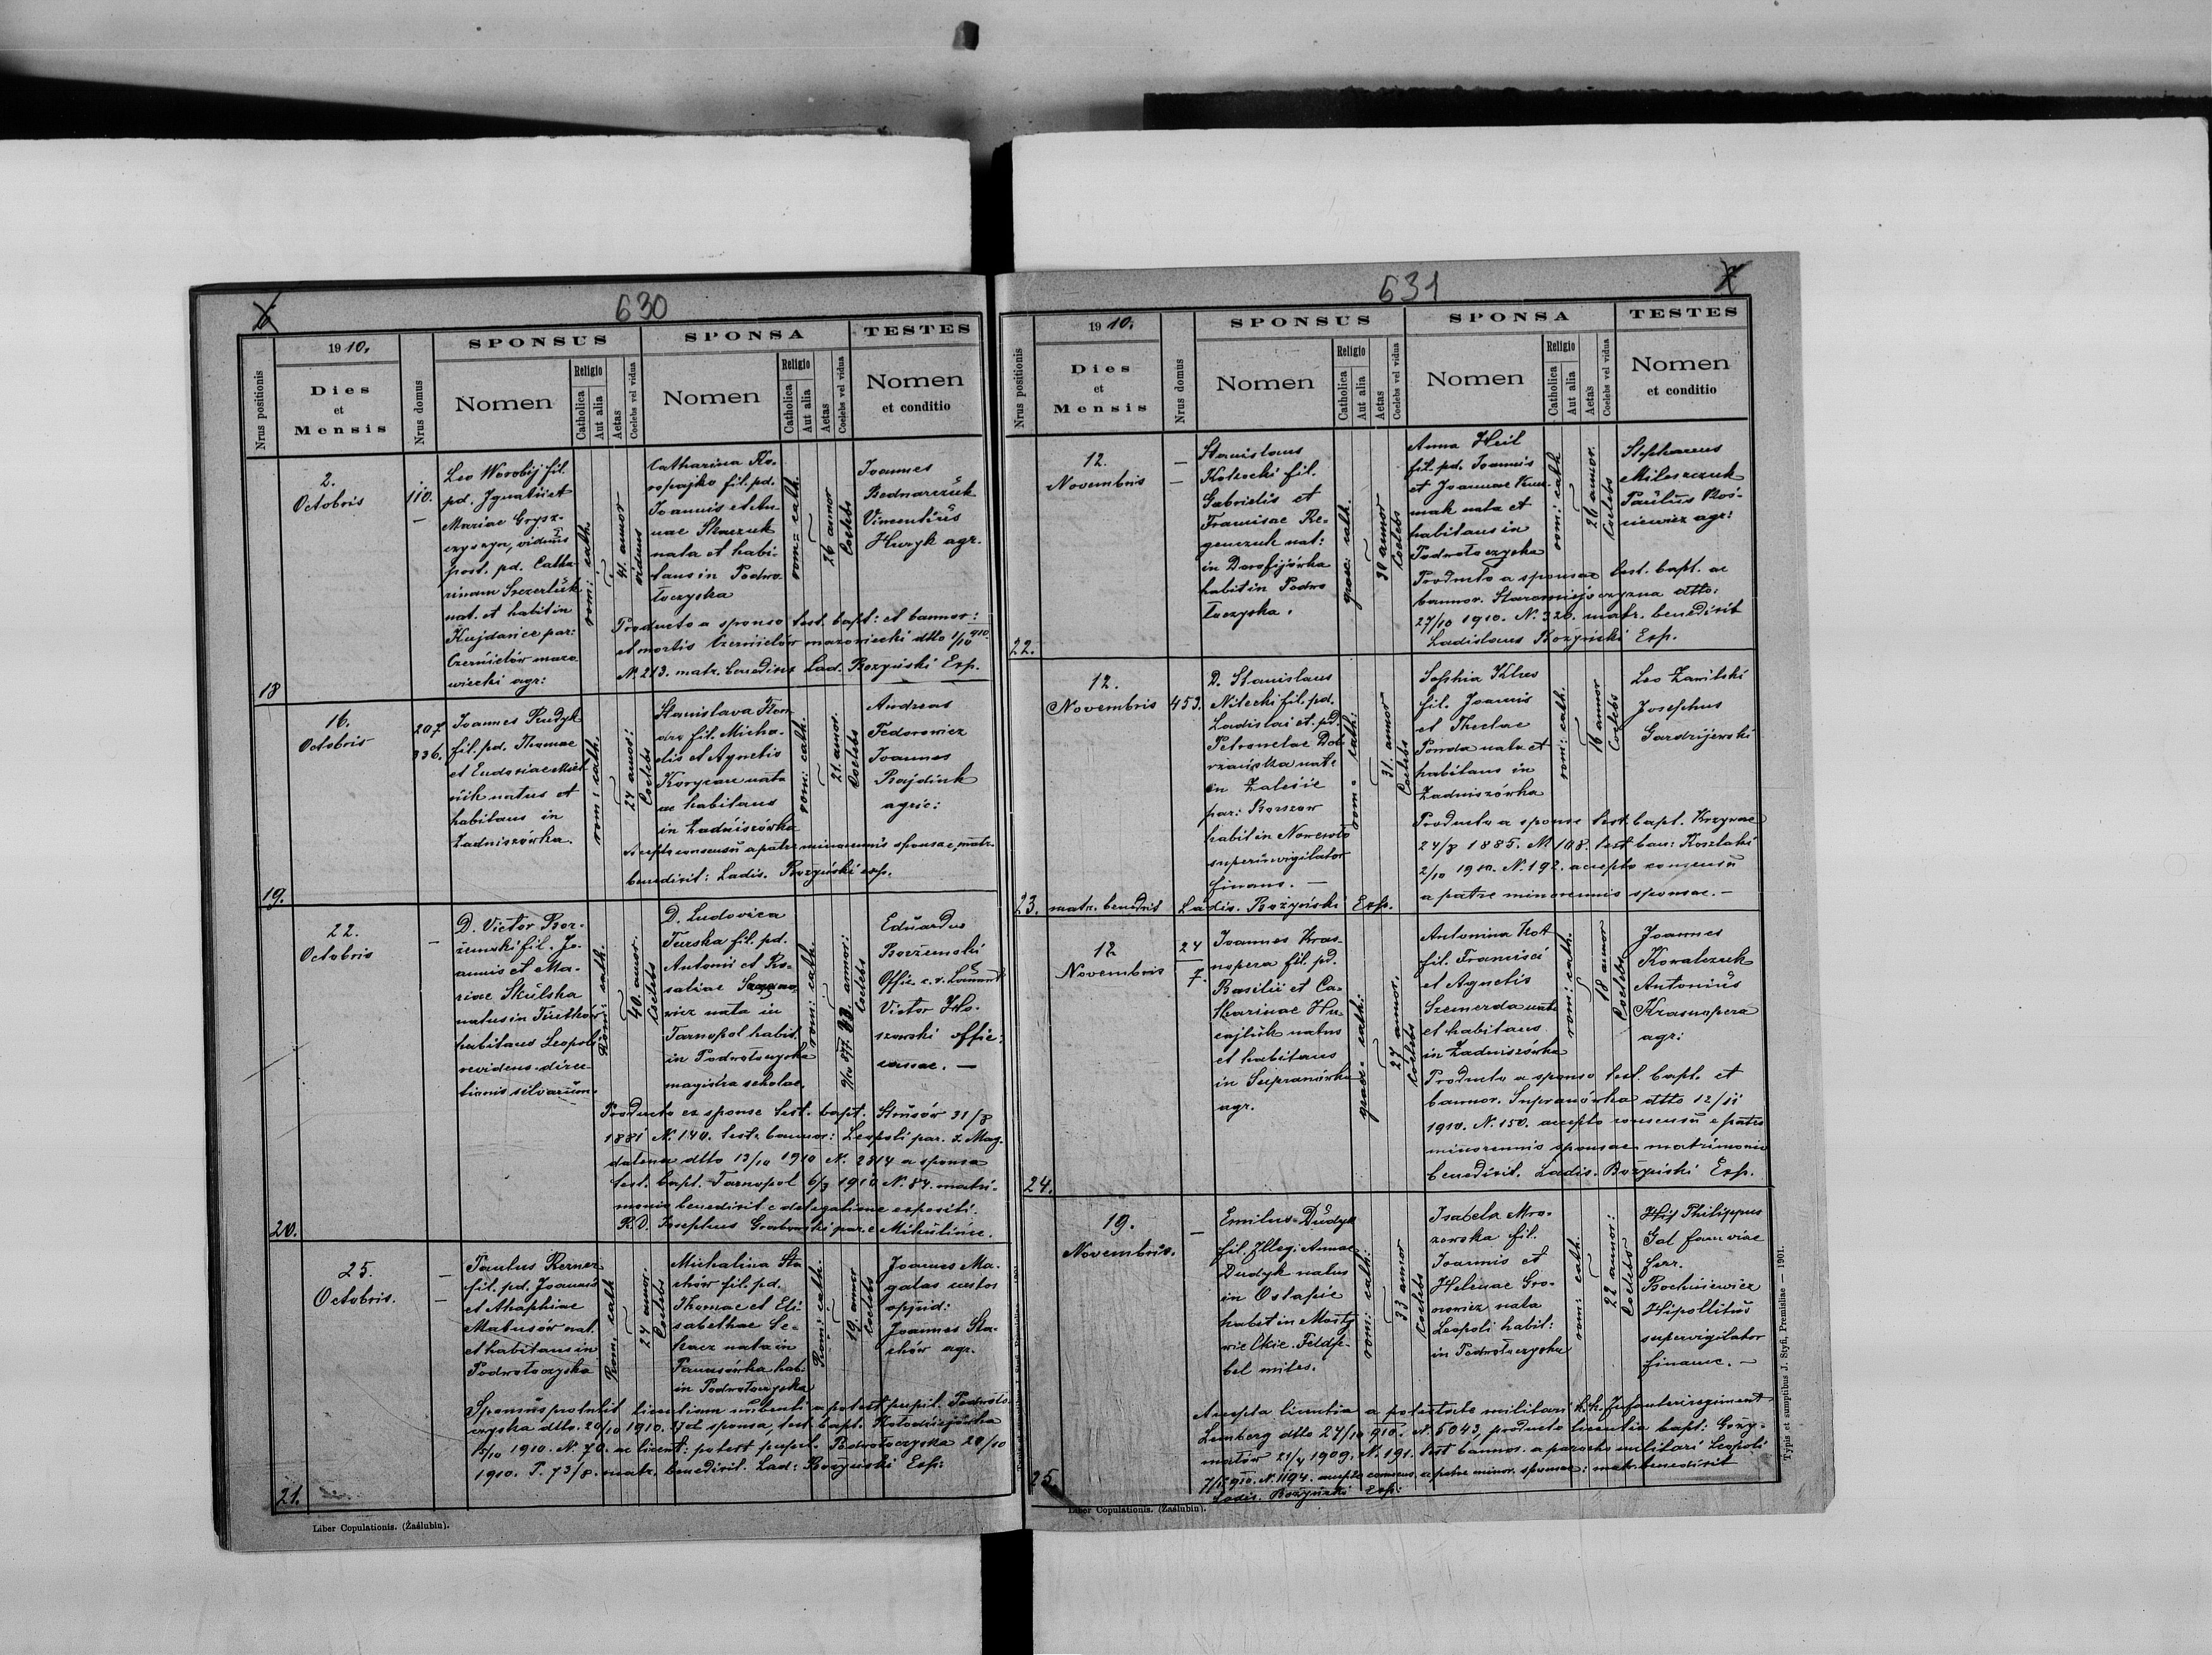 630
1910.
SPONSUS
SPONSA
TESTES
Nrus positionis
Dies
et
Mensis
Nrus domus
Nomen
Religio
Catholica
Aut alia
Aetas
Coelebs vel vidua
Nomen
Religio
Catholica
Aut alia
Aetas
Coelebs vel vidua
Nomen
et conditio
18
2.
Octobris
110.
Leo Worobij fil.
pd. Ignatii et
Mariae Grysz-
czyszyn, viduus
post. pd. Catha-
rinam
nat. et habit in
Kujdańce par:
Czernielów mazo
wiecki agr:
rom: cath.
41. annor
viduus
Catharina Ko-
ropajko fil. pd.
Joannis et An-
nae Skaczuk
nata et habi-
tans in Podwo-
łoczyska
rom: cath.
26 annor
Coelebs
Joannes
Bednarczuk
Vincentius
Huryk agr.
Producto a sponso test. bapt: et bannor:
et mortis Czernielów mazowiecki dtto 1/10 910.
N. 213. matr. benedixit Lad. Bożyński Exp.
19.
16.
Octobris
207
336.
Joannes Rudyk
fil. pd. Thomae
et Eudoxiae
natus et
habitans in
Zadniszówka.
rom: cath.
24 annor:
Coelebs
Stanislava
fil. Micha-
elis et Agnetis
Korycan nata
ac habitans
in Zadniszówka
rom: cath.
21. annor.
Coelebs
Andreas
Fedorowicz
Joannes
Bajdiuk
agric:
Accepto consensu a patre minorennis sponsae, matr.
benedixit: Ladis. Bożyński exp.
20.
22.
Octobris
D. Victor Bor-
żemski fil. Jo-
annis et Ma-
riae Skulska
natus in
habitans Leopoli
revidens direc-
tionis silvarum.
Rom: cath.
40. annor.
Coelebs
D. Ludovica
Turska fil. pd.
Antonii et Ro-
saliae
wicz nata in
Tarnopol habit.
in Podwołoczyska
magistra scholae.
rom: cath.
33. annor:
Coelebs
Eduardus
Borżemski
Offic.
Victor
szowski offic:
cassae.
Producto ex sponso test. bapt. Strusów 31/8
1881 N. 140. test. bannor: Leopoli par. S. Mag-
dalena dtto 13/10 1910 N. 2814 a sponsa
test. bapt. Tarnopol 6/3 1910 N. 84. matri-
monio benedixit e delegatione expositi.
R. D. Josephus Grabowski par. e Mikulińce.
21.
25.
Octobris.
Paulus Rerner
fil. pd. Joannis
et Ahaphiae
Matusów nat.
et habitans in
Podwołoczyska
Rom. cath
24 annor.
Coelebs
Michalina Sta
chów fil. pd.
Thomae et Eli-
sabethae Se-
kacz nata in
Panasówka hab:
in Podwołoczyska
Rom: cath.
19. annor
Coelebs
Joannes Ma-
galas custos
oppid:
Joannes Sta-
chów agr.
Sponsus protulit licentiam nubendi a potest pupil. Podwoło-
czyska dtto. 20/10 1910. sponsa, test. bapt. Kołodziejówka
15/10 1910. N. 70. ac licent: potest pupil. Podwołoczyska 20/10
1910. P. 73/8. matr. benedixit. Lad: Bożyński Exp:
Liber Copulationis. (Zaślubin).
631
1910.
SPONSUS
SPONSA
TESTES
Nrus positionis
Dies
et
Mensis
Nrus domus
Nomen
Religio
Catholica
Aut alia
Aetas
Coelebs vel vidua
Nomen
Religio
Catholica
Aut alia
Aetas
Coelebs vel vidua
Nomen
et conditio
22.
12.
Novembris
Stanislaus
Kotecki fil.
Gabrielis et
Franciscae Re-
genczuk nat:
in Dorofijówka
habit in Podwo
łoczyska.
graec: cath.
30 annor
Coelebs
Anna Heil
fil. pd. Joannis
et Joannae
mak nata et
habitans in
Podwołoczyska
rom: cath
26 annor.
Coelebs
Stephanus
Milaszczuk
Paulus
niewicz agr:
Producto a sponsae test. bapt. ac
bannor. Staromiejszczyzna dtto:
27/10 1910. N. 320. matr. benedixit
Ladislaus Bożyński Exp.
23.
12.
Novembris
453.
D. Stanislaus
Nitecki fil. pd.
Ladislai et. pd.
Petronelae Dob
rzańska nat:
in Zalesie
par: Borszow
habit in Nowosio
superinvigilator
finans.
rom: cath:
31. annor
Coelebs
Sophia Klus
fil. Joannis
et Theclae
Ponda nata et
habitans in
Zadniszówka
rom: cath.
16 annor
Coelebs
Leo Zawilski
Josephus
Gardzijewski
Producto a sponso test. bapt. Krzywcze
24/8 1885. N. 108. test ban: Koszlaki
2/10 1910. N. 192. accepto consensu
a patre minorennis sponsae.
matr. benedixit Ladis. Bożyński Exp.
24.
12
Novembris
24
7.
Joannes Kras-
nopera fil. pd.
Basilii et Ca-
tharinae Hu-
cajluk natus
et habitans
in Supranówka
agr.
graec: cath:
27 annor.
Coelebs
Antonina Kot
fil. Francisci
et Agnetis
Szemerda nata
et habitans
in Zadniszówka
rom: cath.
18 annor
Coelebs
Joannes
Kowalczuk
Antonius
Krasnopera
agr:
Producto a sponso test. bapt. et
bannor. Supranówka dtto 12/11
1910. N. 150. accepto consensu e patre
minorennis sponsae matrimonio
benedixit. Ladis. Bożyński Exp.
25.
19.
Novembris.
Emilius Dudyk
fil. Illeg: Annae
Dudyk natus
in Ostapie
habet in Mosty
wielkie. Feldfe-
bel miles.
rom: cath:
33 annor
Coelebs
Isabela Mro-
zowska fil.
Joannis et
Helenae Gro-
nowicz nata
Leopoli habit:
in Podwołoczyska
rom: cath.
22 annor:
Coelebs
Philippus
Gal fam viae
ferr.
Bochniewicz
Hipollitus
supervigilator
financ.
Accepta licentia a potestate militari k. k. Infanterieregiment
Lemberg dtto 27/10 910. N. 5043, producto licentia bapt: Grzy-
małów 21/4 1909. N. 191. test bannos. a parocho militari Leopoli
7/11 910. N. 1194. accepto consens. a patre minor. sponsae: matr. benedixit
Ladis. Bożyński Exp:
Liber Copulationis. (Zaślubin).
Typis et sumptibus J. Styfi, Premisliae — 1901.